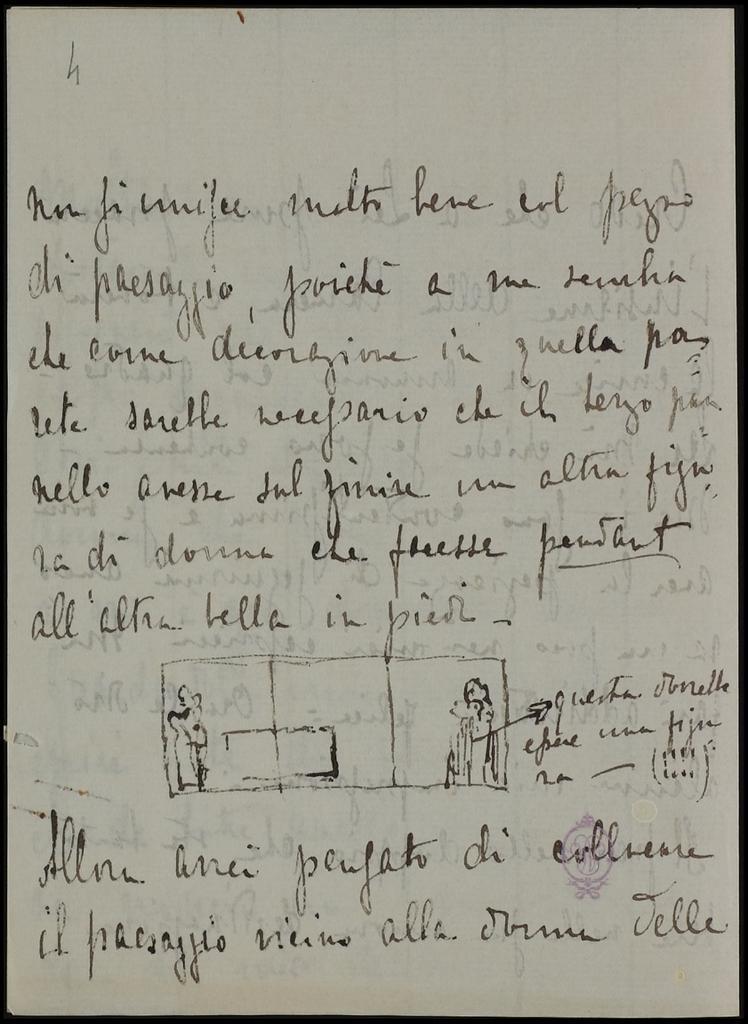 4
non si unisce molto bene col pezzo
di paesaggio, poichè a me sembra
che come decorazione in quella pa=
rete sarebbe necessario che il terzo pan=
nello avesse sul finire un altra figu=
ra di donna che facesse pendant
all'altra bella in piedi –
questa dovrebbe
essere una figu
ra — (!!!!)
Allora avrei pensato di collocare
il paesaggio vicino alla donna delle